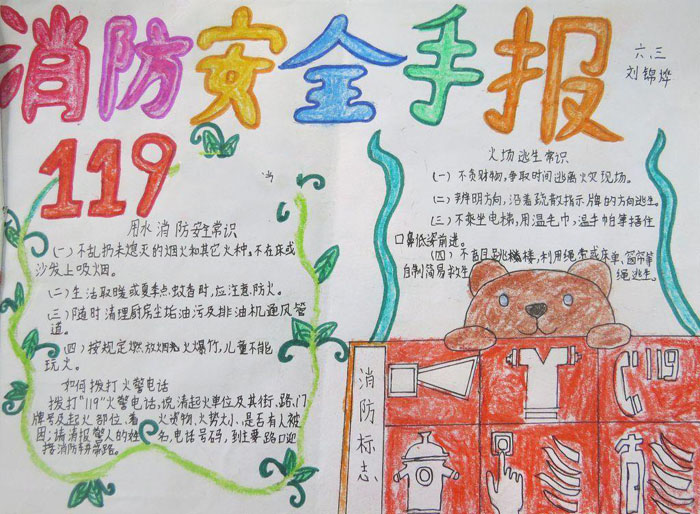 消防安全手报
六、三
刘锦烨
119
用水消防安全常识
(一)不乱扔未熄灭的烟火和其它火种,不在床或
沙发上吸烟。
(二)生活取暖或夏季点蚊香时,应注意防火。
(三)随时清理厨房尘垢油污及排油机通风管
道。
(四)按规定燃放烟花火爆竹,儿童不能
玩火。
如何拨打火警电话
拨打“119”火警电话,说清起火单位及其街、路、门
牌号及起火部位、着火货物、火势大小、是否有人被
困;请清报警人的姓名,电话号码,到主要路口迎
接消防车带路。
火场逃生常识
(一)不贪财物,争取时间逃离火灾现场。
(二)辨明方向,沿着疏散指示牌的方向逃生。
(三)不乘坐电梯,用温毛巾,温手帕等捂住
口鼻低姿前进。
(四)不盲目跳楼,利用绳索或床单、窗帘等
自制简易救生绳逃生。
消防标志
119